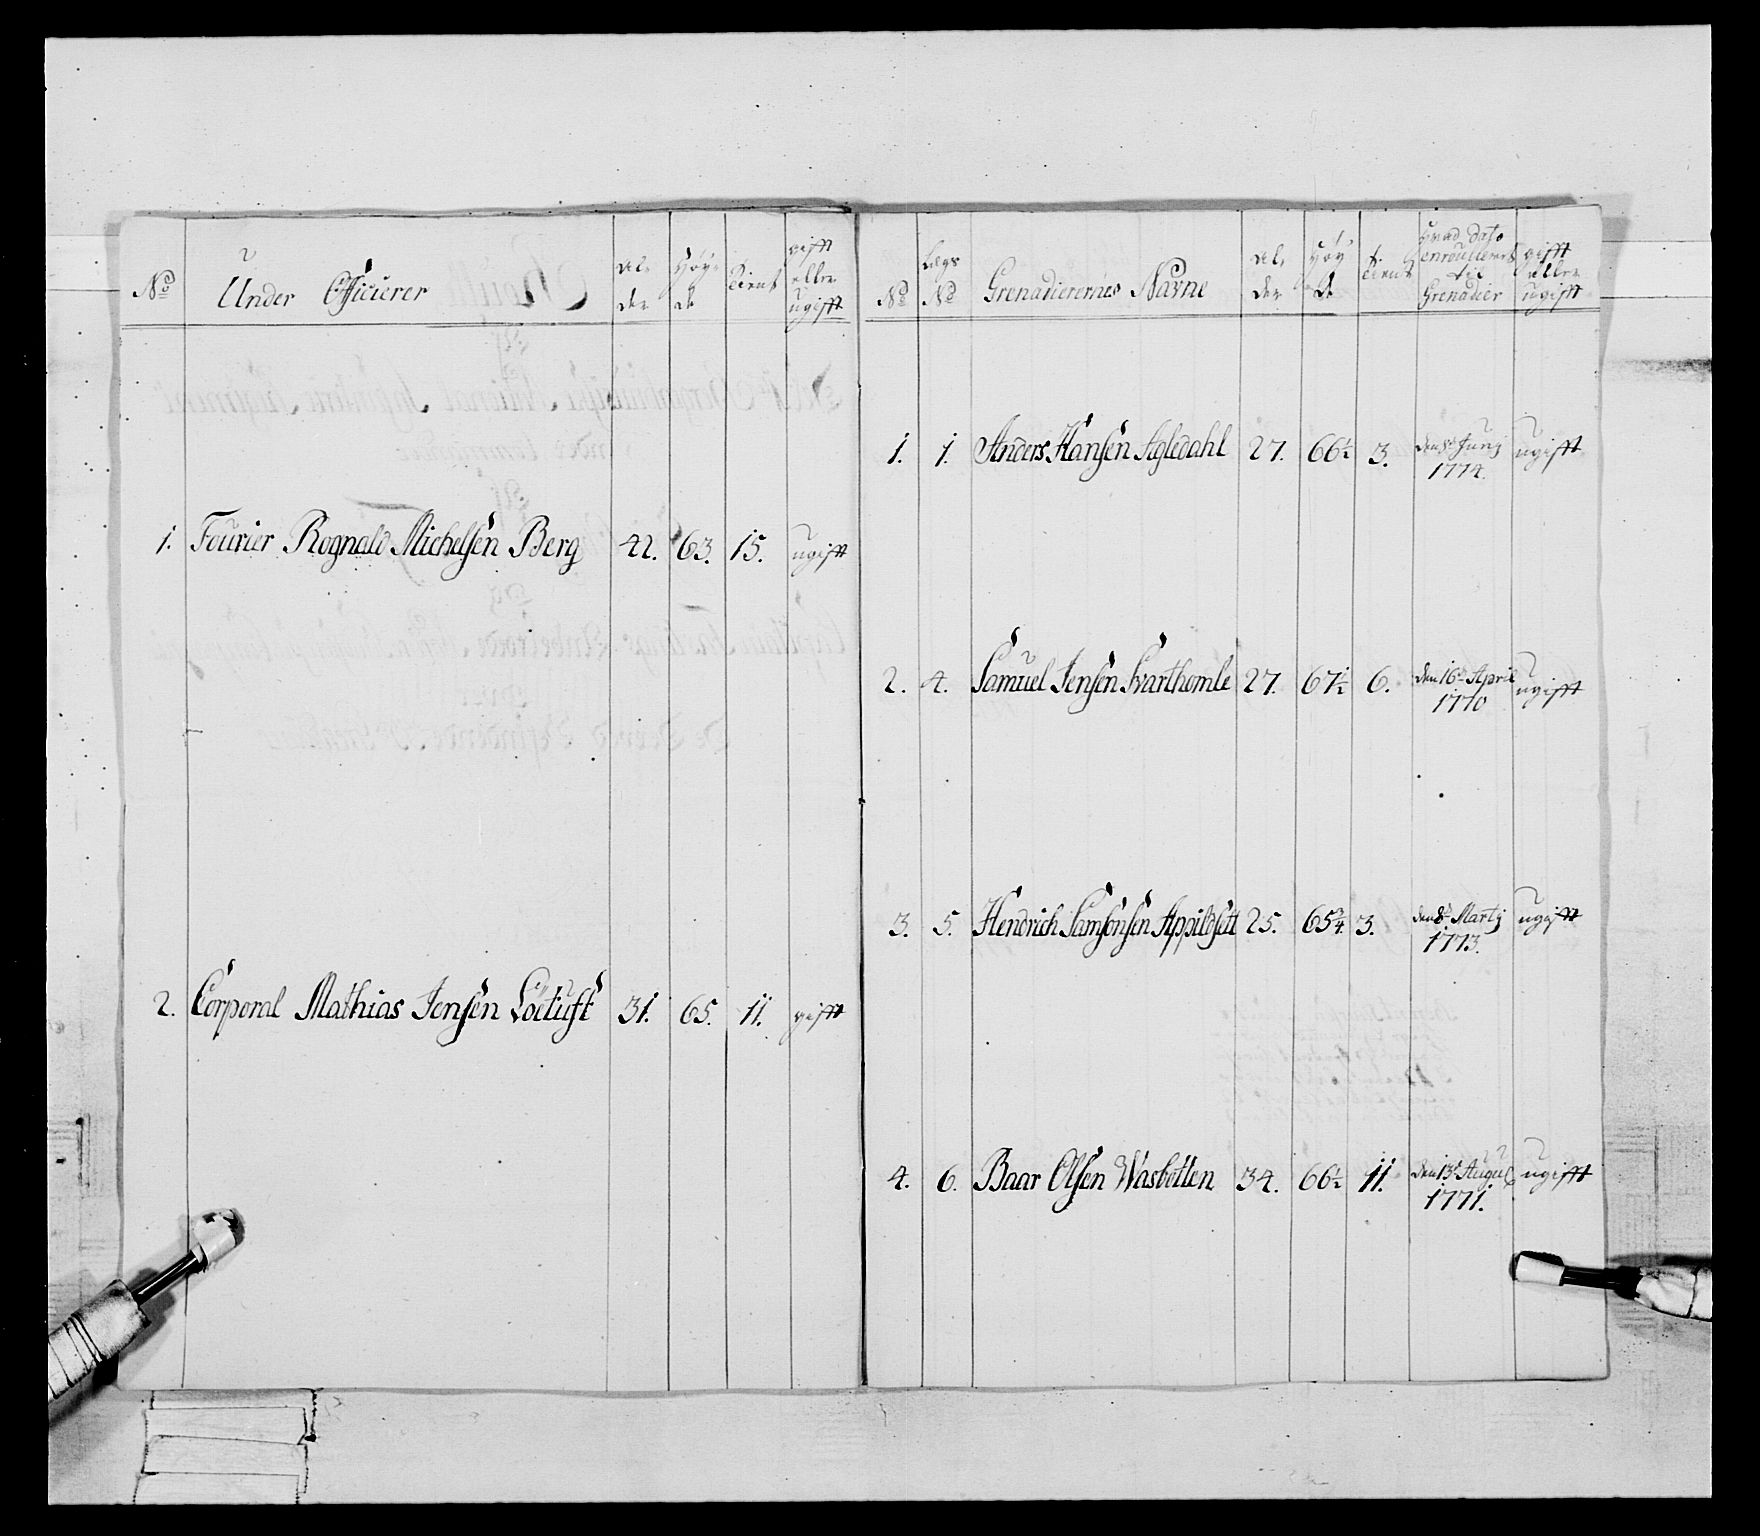 No Under Officierer al- der Høy- de tient gifft eller ugifft
1. Fourier Rognald Michelsen Berg 42. 63. 15. ugifft
2. Corporal Mathias Jensen Löetuft 31. 65. 11. gifft
No Lægs No Grenadierernes Navne al- der Høy de tient Hvad dato enroulleret til Grenadier gifft eller ugifft
1. 1. Anders Hansen Agledahl 27. 66½ 3. den 8de Junj 1774. ugifft
2. 4. Samuel Jensen Svarthomle 27. 67½ 6. den 16de April 1770 ugifft
3. 5. Hendrich Samsonsen Appildsett 25. 65¾ 3. den 8de Martj 1773. ugifft
4. 6. Baar Olsen Wasbotten 34. 66½ 11. den 13de August 1771. ugifft